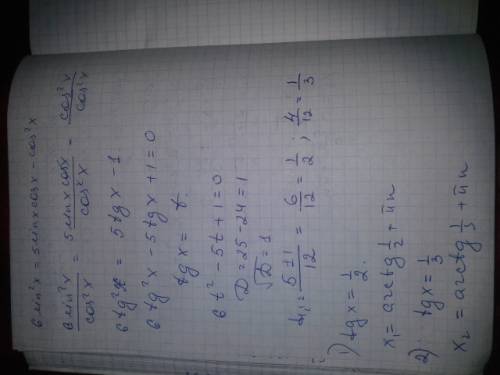 6 sin²x = 5 sinx cosx - cos²x
6 sin²x/cos²x = 5 sinx cosx/cos²x = cos²x/cos²x
6 tg²x = 5 tg x - 1
6 tg²x - 5 tg x + 1 = 0
tg x = t
6 t² - 5t + 1 = 0
D = 25 - 24 = 1
√D = 1
t₁,₂ = 5±1/12 = 6/12 = 1/2 ; 4/12 = 1/3
1) tg x = 1/2.
x₁ = arctg 1/2 + πn
2) tg x = 1/3
x₂ = arctg 1/3 + πn